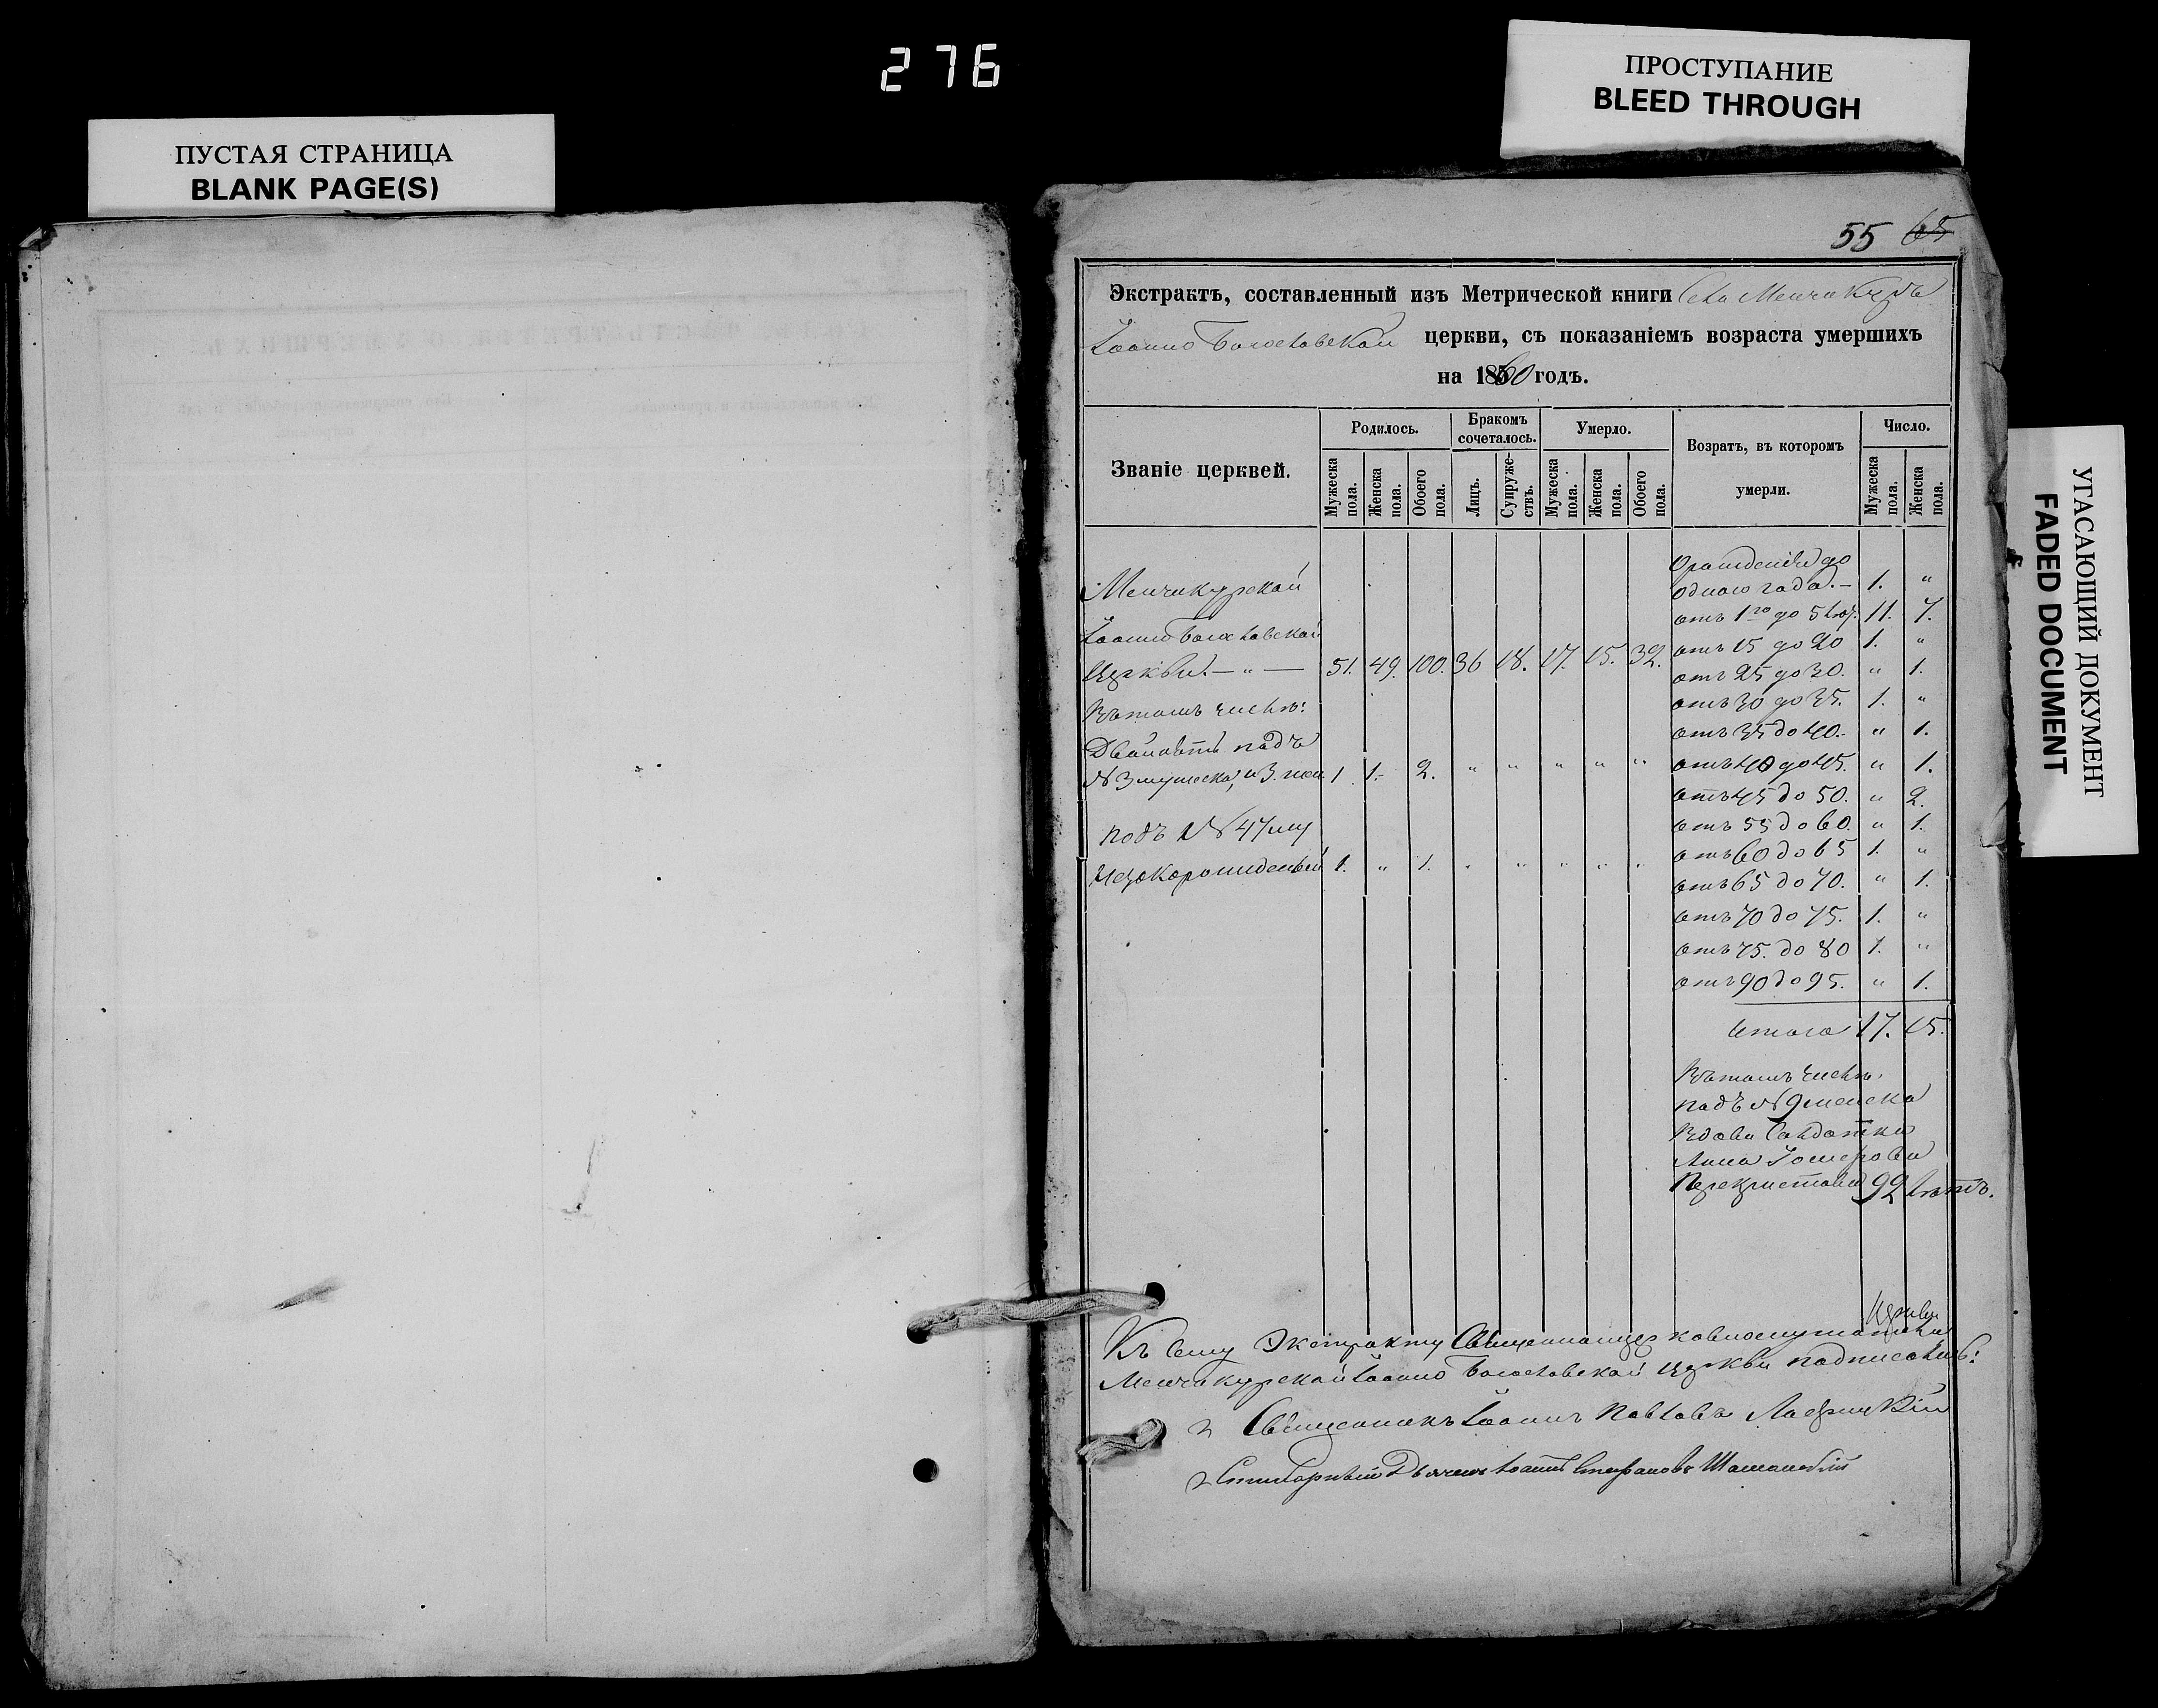 276
ПРОСТУПАНИЕ
BLEED THROUGH
ПУСТАЯ СТРАНИЦА
BLANK PAGE(S)
УГАСАЮЩИЙ ДОКУМЕНТ
FADED DOCUMENT
55 65
Экстрактъ, составленный изъ Метрической книги села Менчикуръ
Іоанно Богословской церкви, съ показаніемъ возраста умершихъ
на 1860 годъ.
Званіе церквей.
Родилось.
Бракомъ сочеталось.
Умерло.
Возратъ, въ котором умерли.
Число.
Мужеска пола.
Женска пола.
Обоего пола.
Лицъ.
Супружествъ.
Мужеска пола.
Женска пола.
Обоего пола.
Мужеска пола.
Женска пола.
Менчикурской
Іоанно Богословской
Церкви. — „ — 51. 49. 100. 36 18. 17. 15. 32.
Въ томъ числѣ:
Двойотъ подъ
№ 3 мужеска, и 3. жен. 1. 1. 2. „ „ „ „ „
подъ № 47 му
незаконорожденный 1. „ 1. „ „ „ „ „
Отрожденія до
одного года. — 1. „
отъ 1го до 5 лѣт. 11. 7.
отъ 15 до 20 1. „
отъ 25 до 30. „ 1.
отъ 30 до 35. 1. „
отъ 35 до 40. „ 1.
отъ 40 до 45. „ 1.
отъ 45 до 50. „ 2.
отъ 55 до 60. „ 1.
отъ 60 до 65 1. „
отъ 65 до 70. „ 1.
отъ 70 до 75. 1. „
отъ 75. до 80 1. „
отъ 90 до 95. „ 1.
Итого 17. 15.
Въ томъ числѣ
подъ № 9 женска
Вдова Солдатка
Анна
92 лѣтъ.
Къ сему Экстракту Священноцерковнослужители
Менчикурской Іоанно Богословской церкви подписались:
Священникъ Іоаннъ Павловъ
Стихарный Дьячекъ Іоаннъ Стефановъ